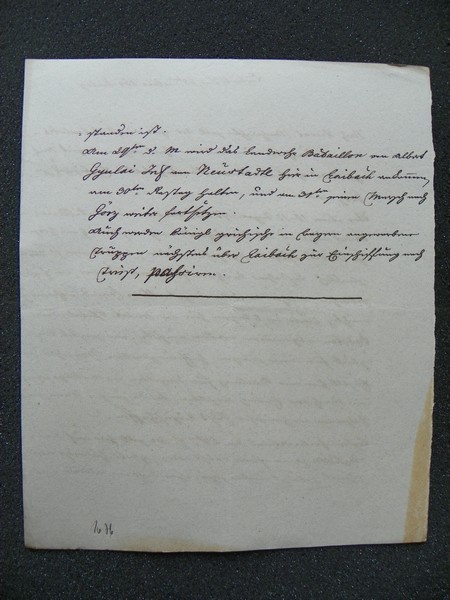 standen ist.
Am 29ten d. M wird das Landwehr Bataillon von Albert
Gyulai Inf von Neustadtl hier in Laibach ankommen,
am 30ten Rastag halten, und am 31ten seine Marsch nach
Görz weiter fortsetzen.
Auch werden königl griechische in Bayern angeworbene
Truppen nächstens über Laibach zur Einschiffung nach
Triest, passiren.